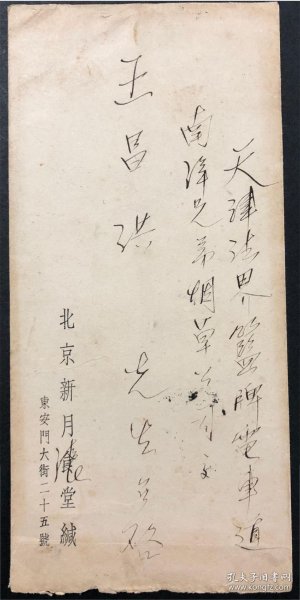 天津法界藍牌電車道
南洋兄弟烟草公司交
王昌洪 先生台啟
北京新月濟堂緘
東安門大街二十五號
孔夫子旧书网